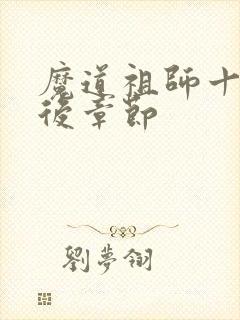 魔道祖師十
後章節
劉夢翎